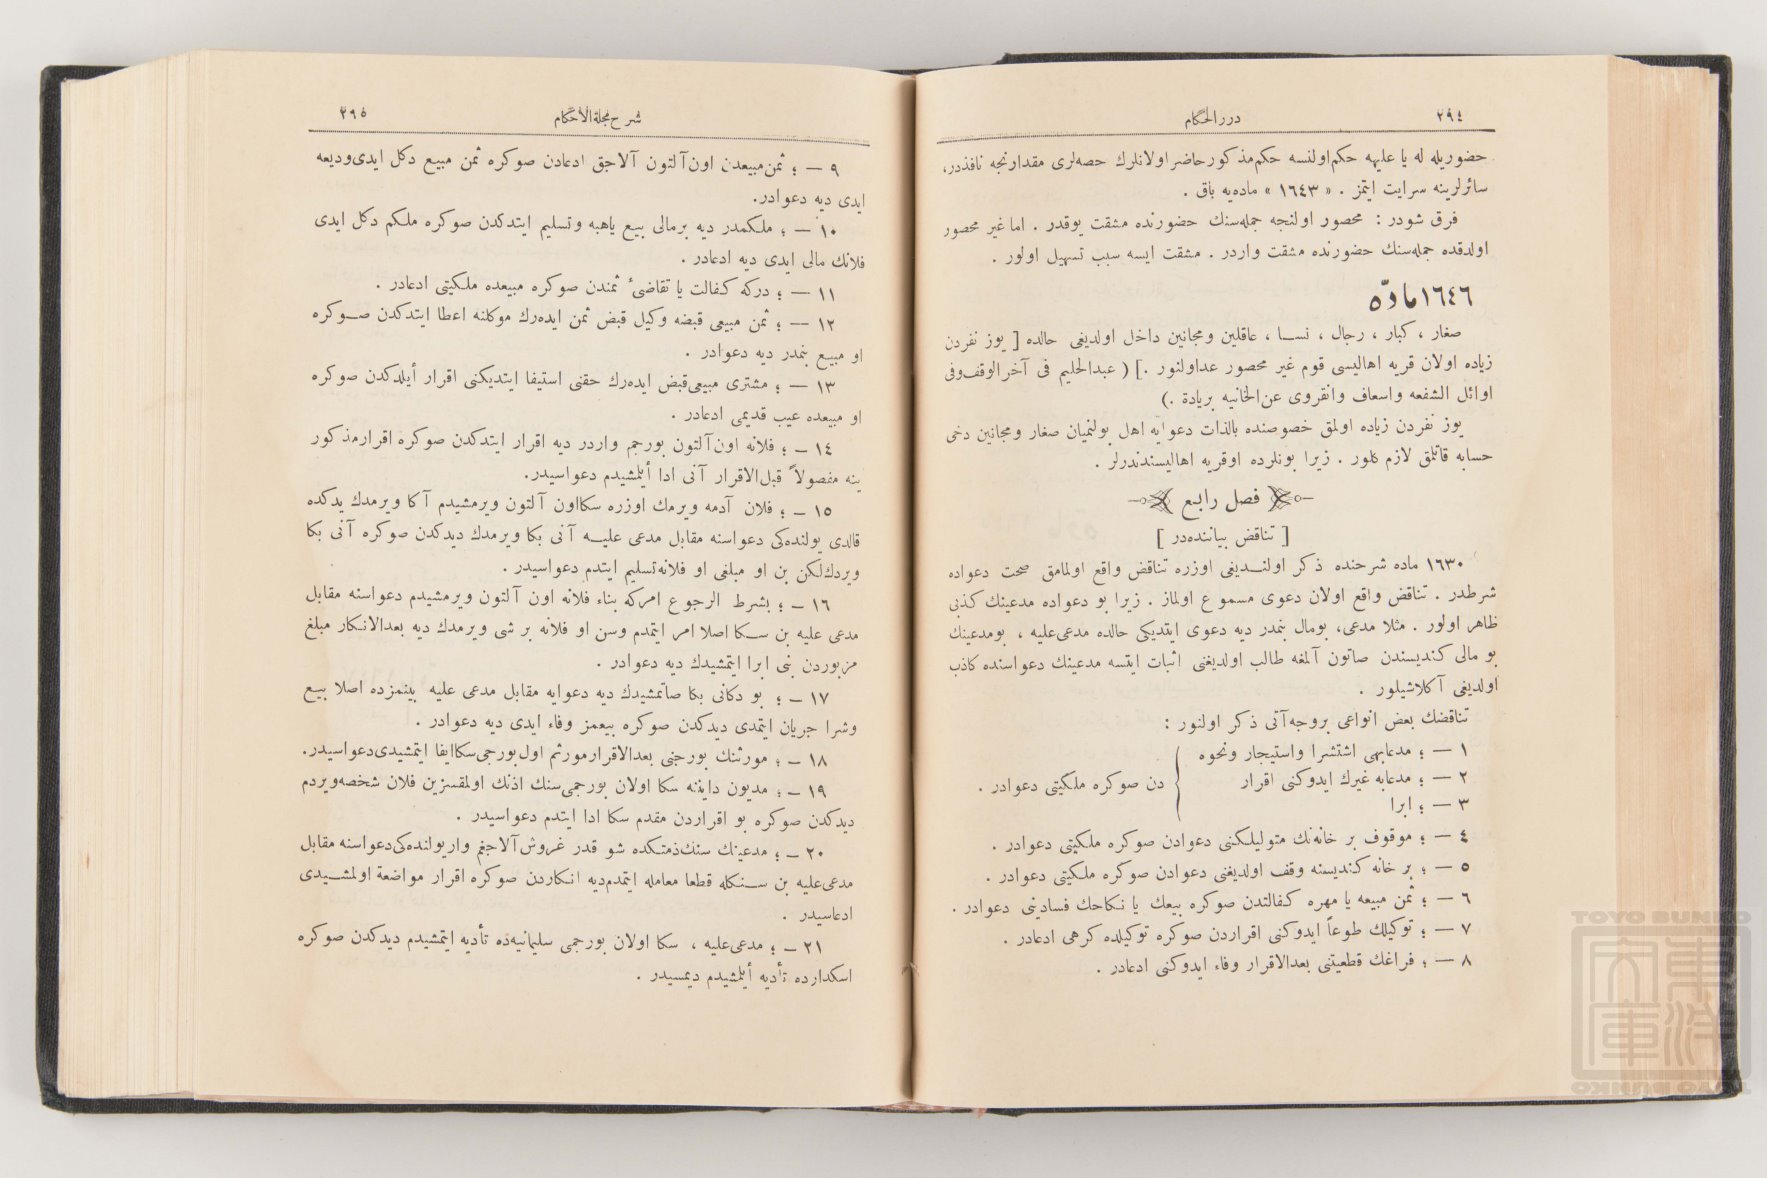 ٢٩٤
درر الحكام
حضوریله له یا علیهه حکم اولنسه حکم مذکور حاضر اولانلرك حصه‌لری مقدارنجه نافذدر،
سائرلرینه سرایت ایتمز . « ١٦٤٣ » ماده‌یه باق .
فرق شودر : محصور اولنجه جمله‌سنك حضورنده مشقت یوقدر . اما غیر محصور
اولدقده جمله‌سنك حضورنده مشقت واردر . مشقت ایسه سبب تسهیل اولور .
١٦٤٦ مادّه
صغار ، کبار ، رجال ، نسا ، عاقلین ومجانین داخل اولدیغی حالده [ یوز نفردن
زیاده اولان قریه اهالیسی قوم غیر محصور عد اولنور . ] ( عبدالحلیم فی آخر الوقف وفی
اوائل الشفعه واسعاف وانقروی عن الخانیه بزیادة .)
یوز نفردن زیاده اولمق خصوصنده بالذات دعوایه اهل بولنمیان صغار ومجانین دخی
حسابه قاتلمق لازم کلور . زیرا بونلرده اوقریه اهالیسندندرلر .
فصل رابع
[ تناقض بیاننده‌در ]
١٦٣٠ ماده شرحنده ذکر اولندیغی اوزره تناقض واقع اولمامق صحت دعواده
شرطدر . تناقض واقع اولان دعوی مسموع اولماز . زیرا بو دعواده مدعینك کذبی
ظاهر اولور . مثلا مدعی، بومال بنمدر دیه دعوی ایتدیکی حالده مدعی‌علیه ، بومدعینك
بو مالی کندیسندن صاتون آلمغه طالب اولدیغنی اثبات ایتسه مدعینك دعواسنده کاذب
اولدیغی آکلاشیلور .
تناقضك بعض انواعی بروجه آتی ذکر اولنور :
١ — ؛ مدعابهی اشتشرا واستیجار ونحوه
٢ — ؛ مدعابه غیرك ایدوکنی اقرار
٣ — ؛ ابرا
دن صوکره ملکیتی دعوادر .
٤ — ؛ موقوف بر خانه‌نك متولیلکنی دعوادن صوکره ملکیتی دعوادر .
٥ — ؛ بر خانه کندیسنه وقف اولدیغنی دعوادن صوکره ملکیتی دعوادر .
٦ — ؛ ثمن مبیعه یا مهره کفالتدن صوکره بیعك یا نکاحك فسادینی دعوادر .
٧ — ؛ توکیلك طوعاً ایدوکنی اقراردن صوکره توکیلده کرهی ادعادر .
٨ — ؛ فراغك قطعیتنی بعدالاقرار وفاء ایدوکنی ادعادر .
شرح مجلة الاحكام
٢٩٥
٩ — ؛ ثمن مبیعدن اون آلتون آلاجق ادعادن صوکره ثمن مبیع دکل ایدی ودیعه
ایدی دیه دعوادر.
١٠ — ؛ ملکمدر دیه برمالی بیع یاهبه وتسلیم ایتدکدن صوکره ملکم دکل ایدی
فلانك مالی ایدی دیه ادعادر .
١١ — ؛ درکه کفالت یا تقاضیٔ ثمندن صوکره مبیعده ملکیتی ادعادر .
١٢ — ؛ ثمن مبیعی قبضه وکیل قبض ثمن ایده‌رك موکلنه اعطا ایتدکدن صوکره
او مبیع بنمدر دیه دعوادر .
١٣ — ؛ مشتری مبیعی قبض ایده‌رك حقنی استیفا ایتدیکنی اقرار أیلدکدن صوکره
او مبیعده عیب قدیمی ادعادر .
١٤ — ؛ فلانه اون آلتون بورجم واردر دیه اقرار ایتدکدن صوکره اقرار مذکور
ینه مفصولاً قبل الاقرار آنی ادا أیلمشیدم دعواسیدر.
١٥ — ؛ فلان آدمه ویرمك اوزره سکا اون آلتون ویرمشیدم آکا ویرمدك یدکده
قالدی یولنده‌کی دعواسنه مقابل مدعی علیه آنی بکا ویرمدك دیدکدن صوکره آنی بکا
ویردك لکن بن او مبلغی او فلانه تسلیم ایتدم دعواسیدر .
١٦ — ؛ بشرط الرجوع امرکه بناء فلانه اون آلتون ویرمشیدم دعواسنه مقابل
مدعی علیه بن سکا اصلا امر ایتمدم وسن او فلانه بر شی ویرمدك دیه بعدالانکار مبلغ
مزبوردن بنی ابرا ایتمشیدك دیه دعوادر .
١٧ — ؛ بو دکانی بکا صاتمشیدك دیه دعوایه مقابل مدعی علیه بینمزده اصلا بیع
وشرا جریان ایتمدی دیدکدن صوکره بیعمز وفاء ایدی دیه دعوادر .
١٨ — ؛ مورثنك بورجنی بعدالاقرار مورثم اول بورجی سکا ایفا ایتمشیدی دعواسیدر.
١٩ — ؛ مدیون داینه سکا اولان بورجمی سنك اذنك اولمقسزین فلان شخصه ویردم
دیدکدن صوکره بو اقراردن مقدم سکا ادا ایتدم دعواسیدر .
٢٠ — ؛ مدعینك سنك ذمتکده شو قدر غروش آلاجغم وار یولنده‌کی دعواسنه مقابل
مدعی علیه بن سنکله قطعا معامله ایتمدم دیه انکاردن صوکره اقرار مواضعة اولمشیدی
ادعاسیدر .
٢١ — ؛ مدعی علیه ، سکا اولان بورجمی سلیمانیه‌ده تأدیه ایتمشیدم دیدکدن صوکره
اسکدارده تأدیه أیلمشیدم دیمسیدر .
TOYO BUNKO
東洋文庫